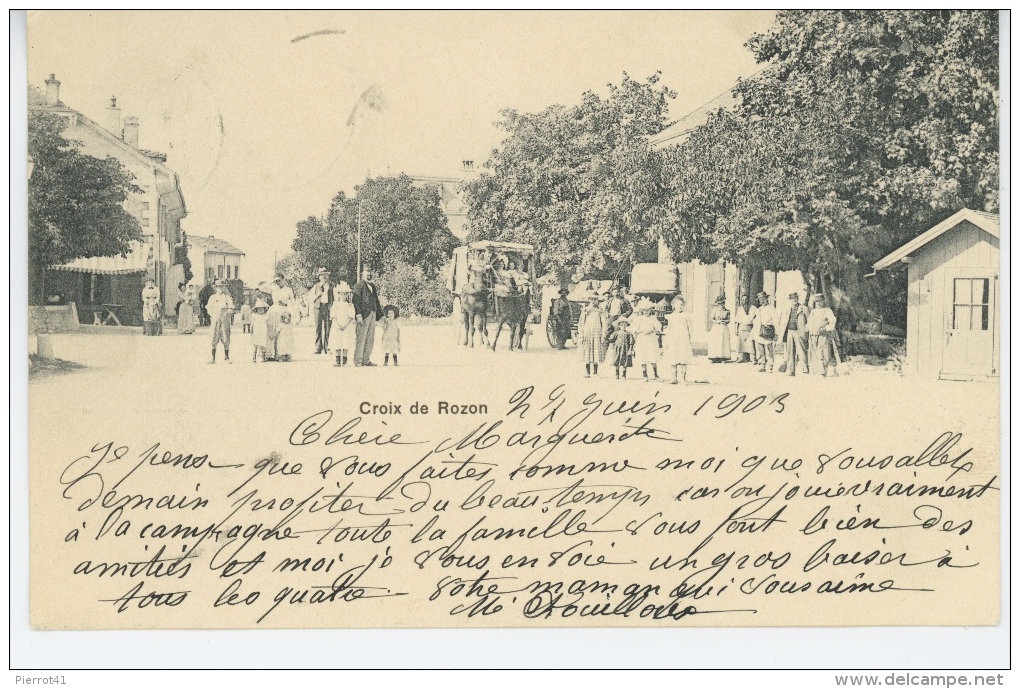 Croix de Rozon 27 Juin 1903
Chère Marguerite
Je pense que vous faites comme moi que vous allez
demain profiter du beau temps car on jouie vraiment
à la campagne toute la famille vous font bien des
amitiés et moi je vous envoie un gros baiser à
tous les quatre - votre maman qui vous aime
Pierrot41
www.delcampe.net